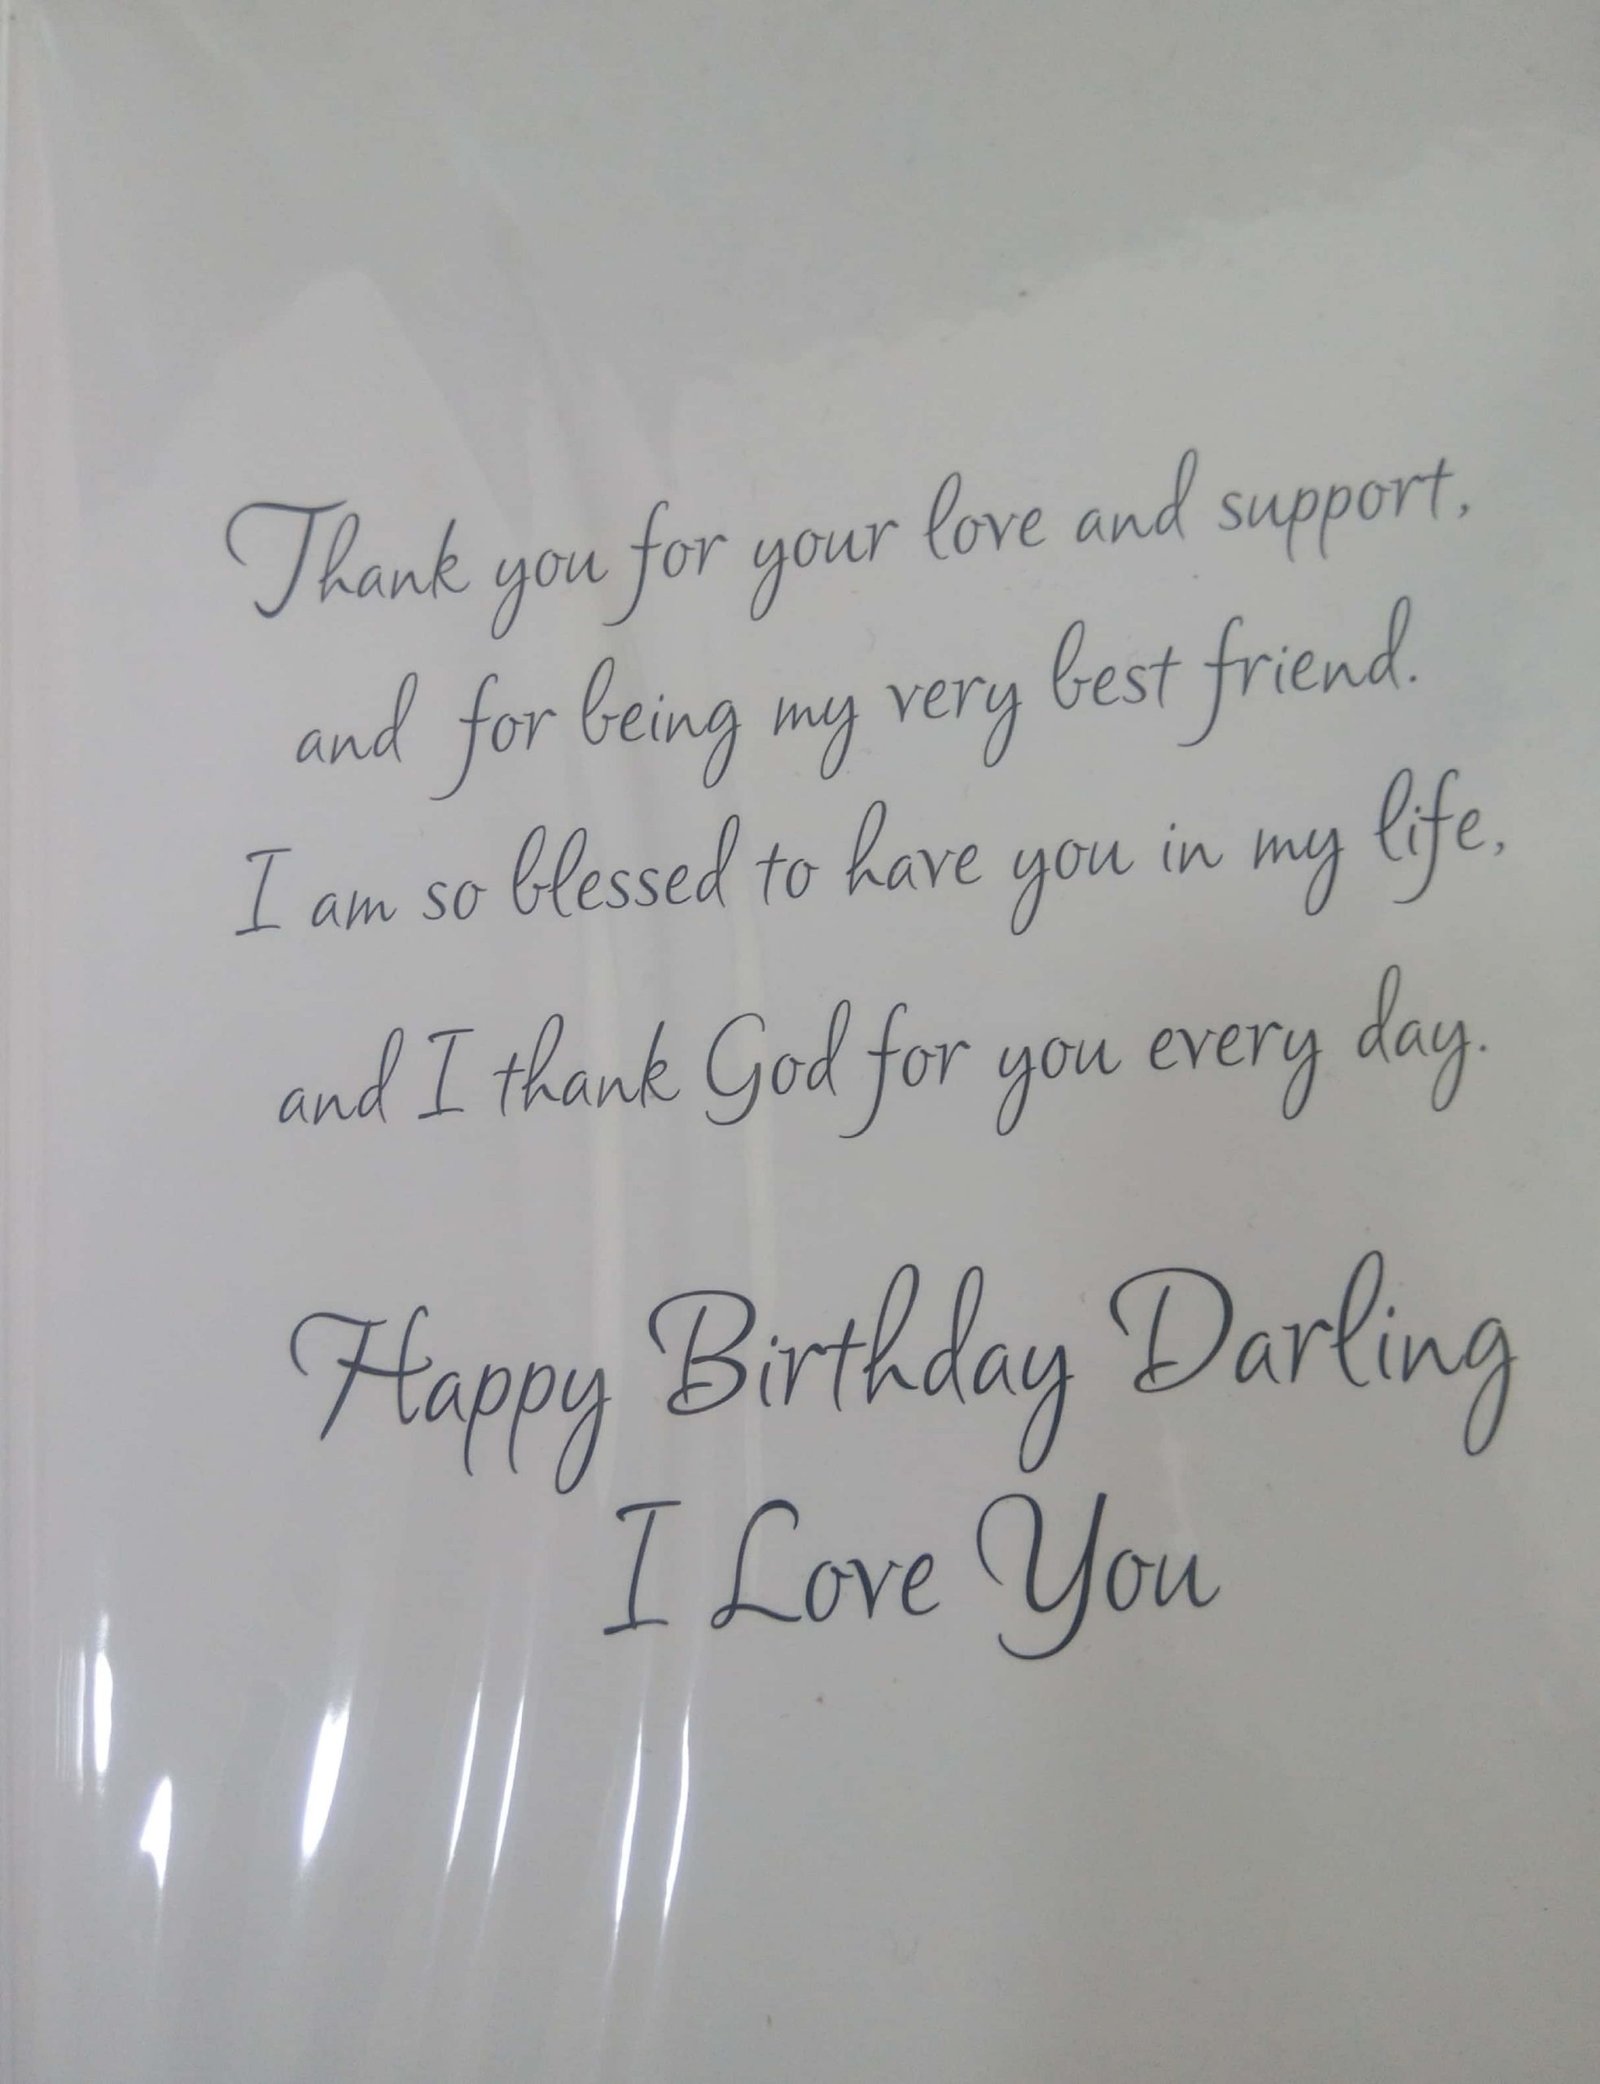 Thank you for your love and support,
and for being my very best friend.
I am so blessed to have you in my life,
and I thank God for you every day.
Happy Birthday Darling
I Love You